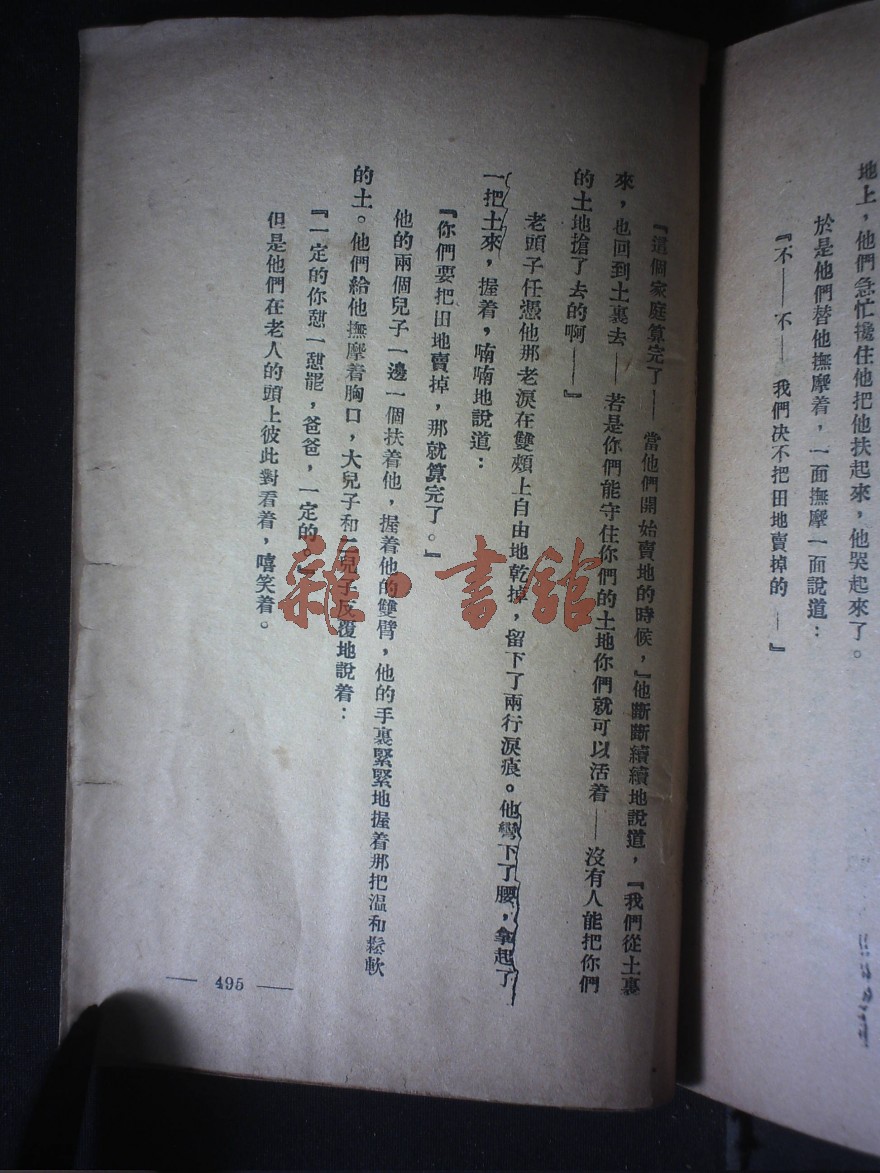 地上，他們急忙攙住他把他扶起來，他哭起來了。
於是他們替他撫摩着，一面撫摩一面說道：
『不——不——我們决不把田地賣掉的—』
『這個家庭算完了——當他們開始賣地的時候，』他斷斷續續地說道，『我們從土裏
來，也回到土裏去——若是你們能守住你們的土地你們就可以活着——沒有人能把你們
的土地搶了去的啊——』
老頭子任憑他那老淚在雙頰上自由地乾掉，留下了兩行淚痕。他彎下了腰，拿起了
一把土來，握着，喃喃地說道：
『你們要把田地賣掉，那就算完了。』
他的兩個兒子一邊一個扶着他，握着他的雙臂，他的手裏緊緊地握着那把溫和鬆軟
的土。他們給他撫摩着胸口，大兒子和二兒子反覆地說着：
『一定的你憇一憇罷，爸爸，一定的。』
但是他們在老人的頭上彼此對看着，嘻笑着。
— 495 —
雜·書舘